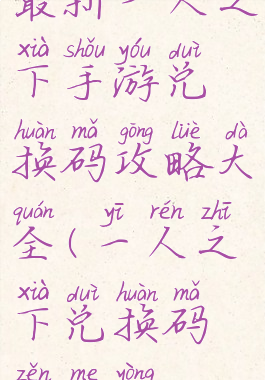 最新一人之
xià shǒu yóu duì
下手游兑
huàn mǎ gōng lüè dà
换码攻略大
quán yī rén zhī
全(一人之
xià duì huàn mǎ
下兑换码
zěn me yòng